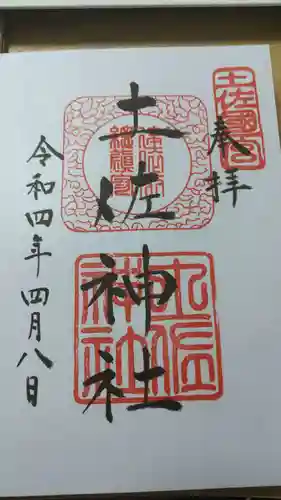 奉拝
土佐神社
令和四年四月八日
土佐國
土佐神社